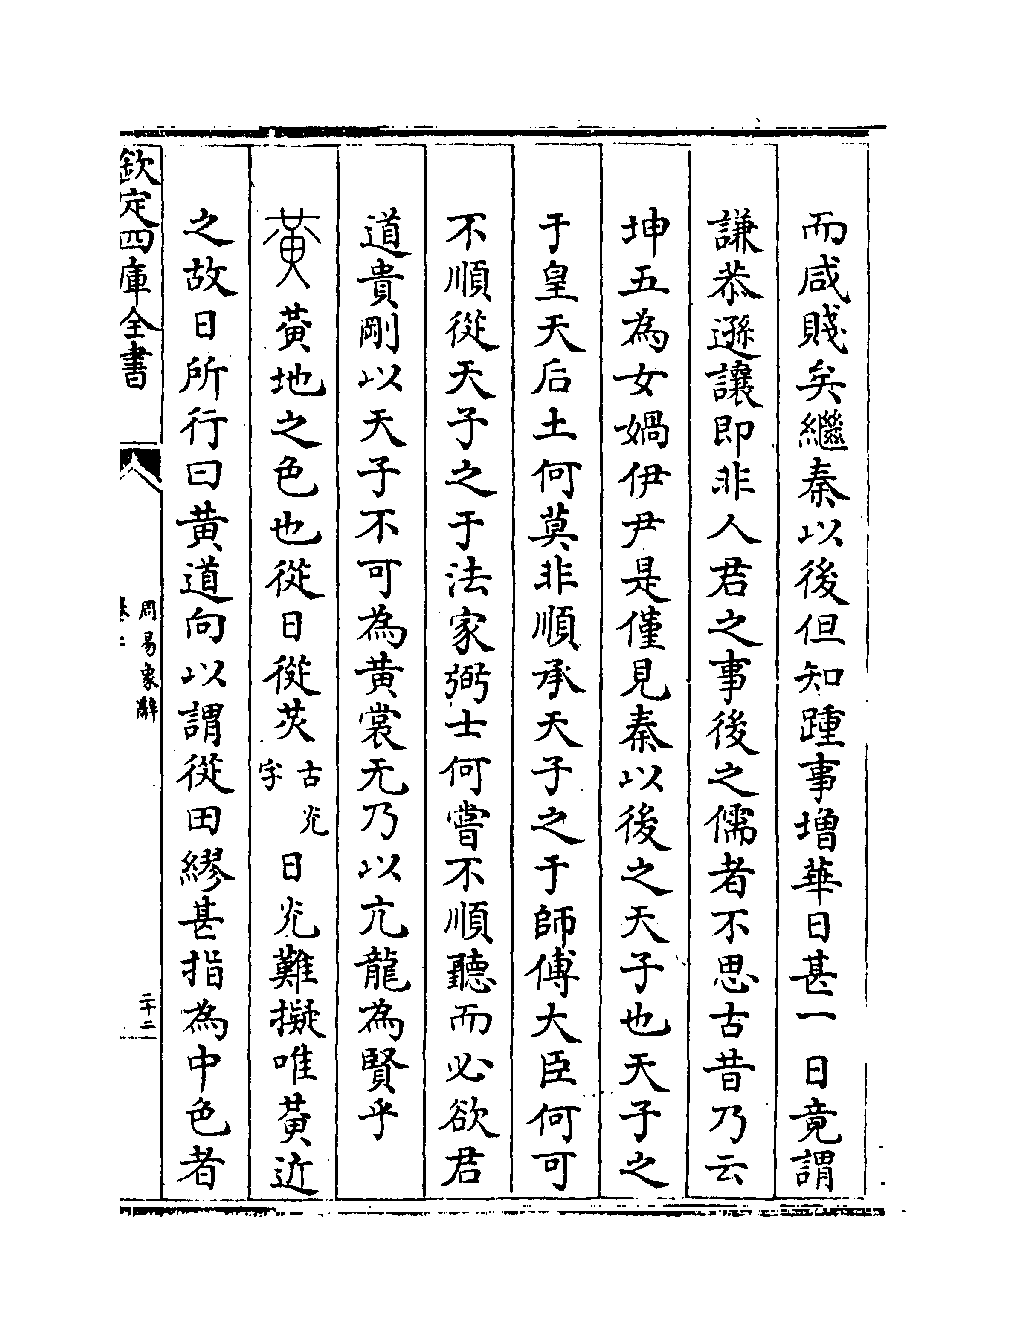 而咸賤矣繼秦以後但知踵事增華日甚一日竟謂
謙恭遜讓即非人君之事後之儒者不思古昔乃云
坤五為女媧伊尹是僅見秦以後之天子也天子之
于皇天后土何莫非順承天子之于師傅大臣何可
不順從天子之于法家弼士何嘗不順聽而必欲君
道貴剛以天子不可為黃裳无乃以亢龍為賢乎
黃 黃地之色也從日從炗古灮字日灮難擬唯黃近
之故日所行曰黃道向以謂從田繆甚指為中色者
欽定四庫全書
周易象辭
二十二